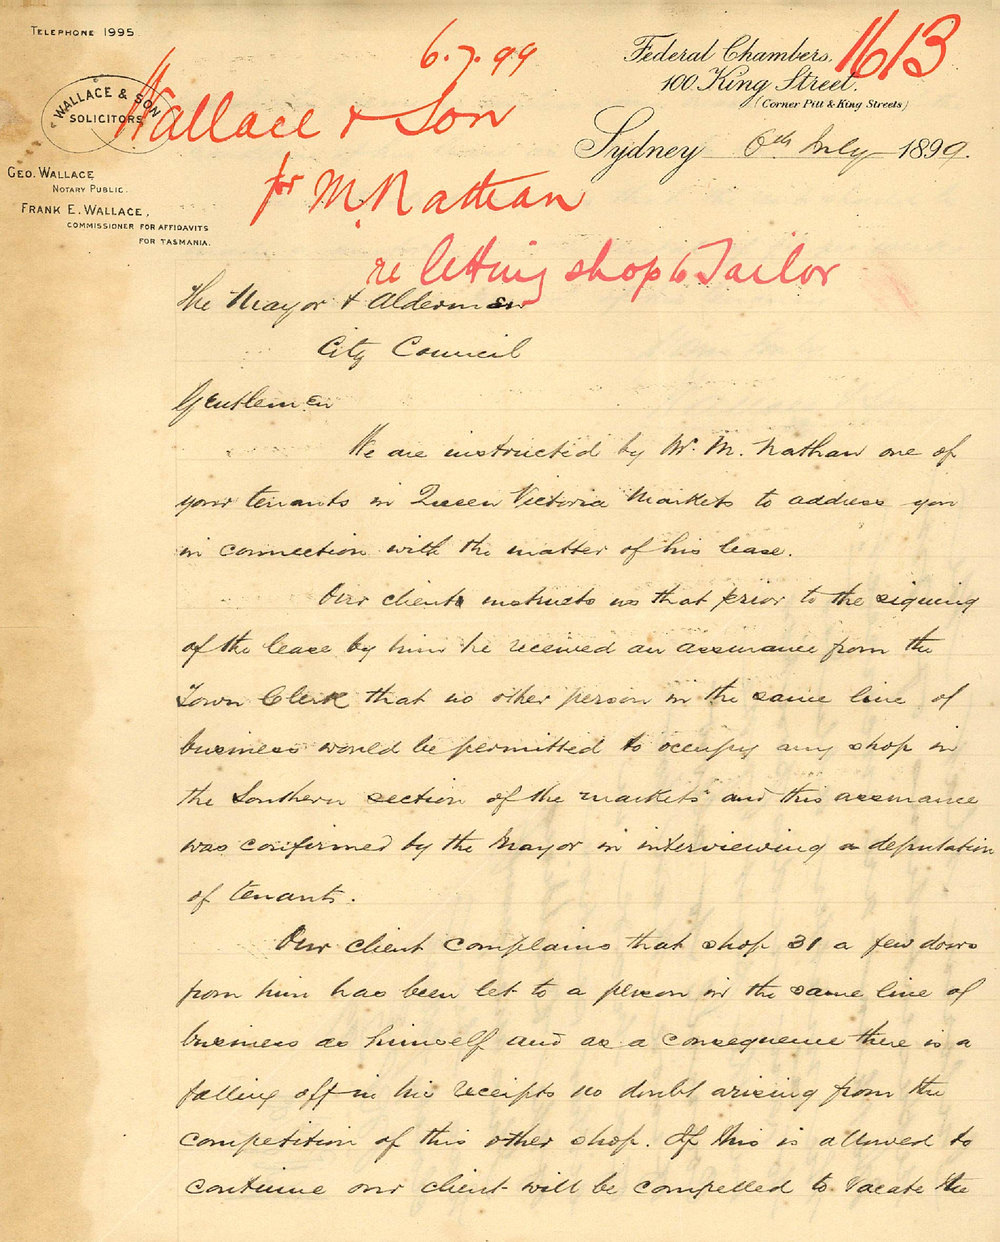 TELEPHONE 1995.
WALLACE & SON
SOLICITORS
GEO. WALLACE
NOTARY PUBLIC.
FRANK E. WALLACE,
COMMISSIONER FOR AFFIDAVITS
FOR TASMANIA.
Federal Chambers,
100 King Street.
(Corner Pitt & King Streets)
Sydney 6th July 1899.
1613
6.7.99
Wallace & Son
for M. Nathan
re letting shop to Tailor
The Mayor & Aldermen
City Council
Gentlemen
We are instructed by Mr. M. Nathan one of
your tenants in Queen Victoria Markets to address you
in connection with the matter of his lease.
Our client instructs us that prior to the signing
of the lease by him he received an assurance from the
Town Clerk that no other person in the same line of
business would be permitted to occupy any shop in
the Southern section of the markets and this assurance
was confirmed by the Mayor in interviewing a deputation
of tenants.
Our client complains that shop 31 a few doors
from him has been let to a person in the same line of
business as himself and as a consequence there is a
falling off in his receipts no doubt arising from the
competition of this other shop. If this is allowed to
continue our client will be compelled to vacate the